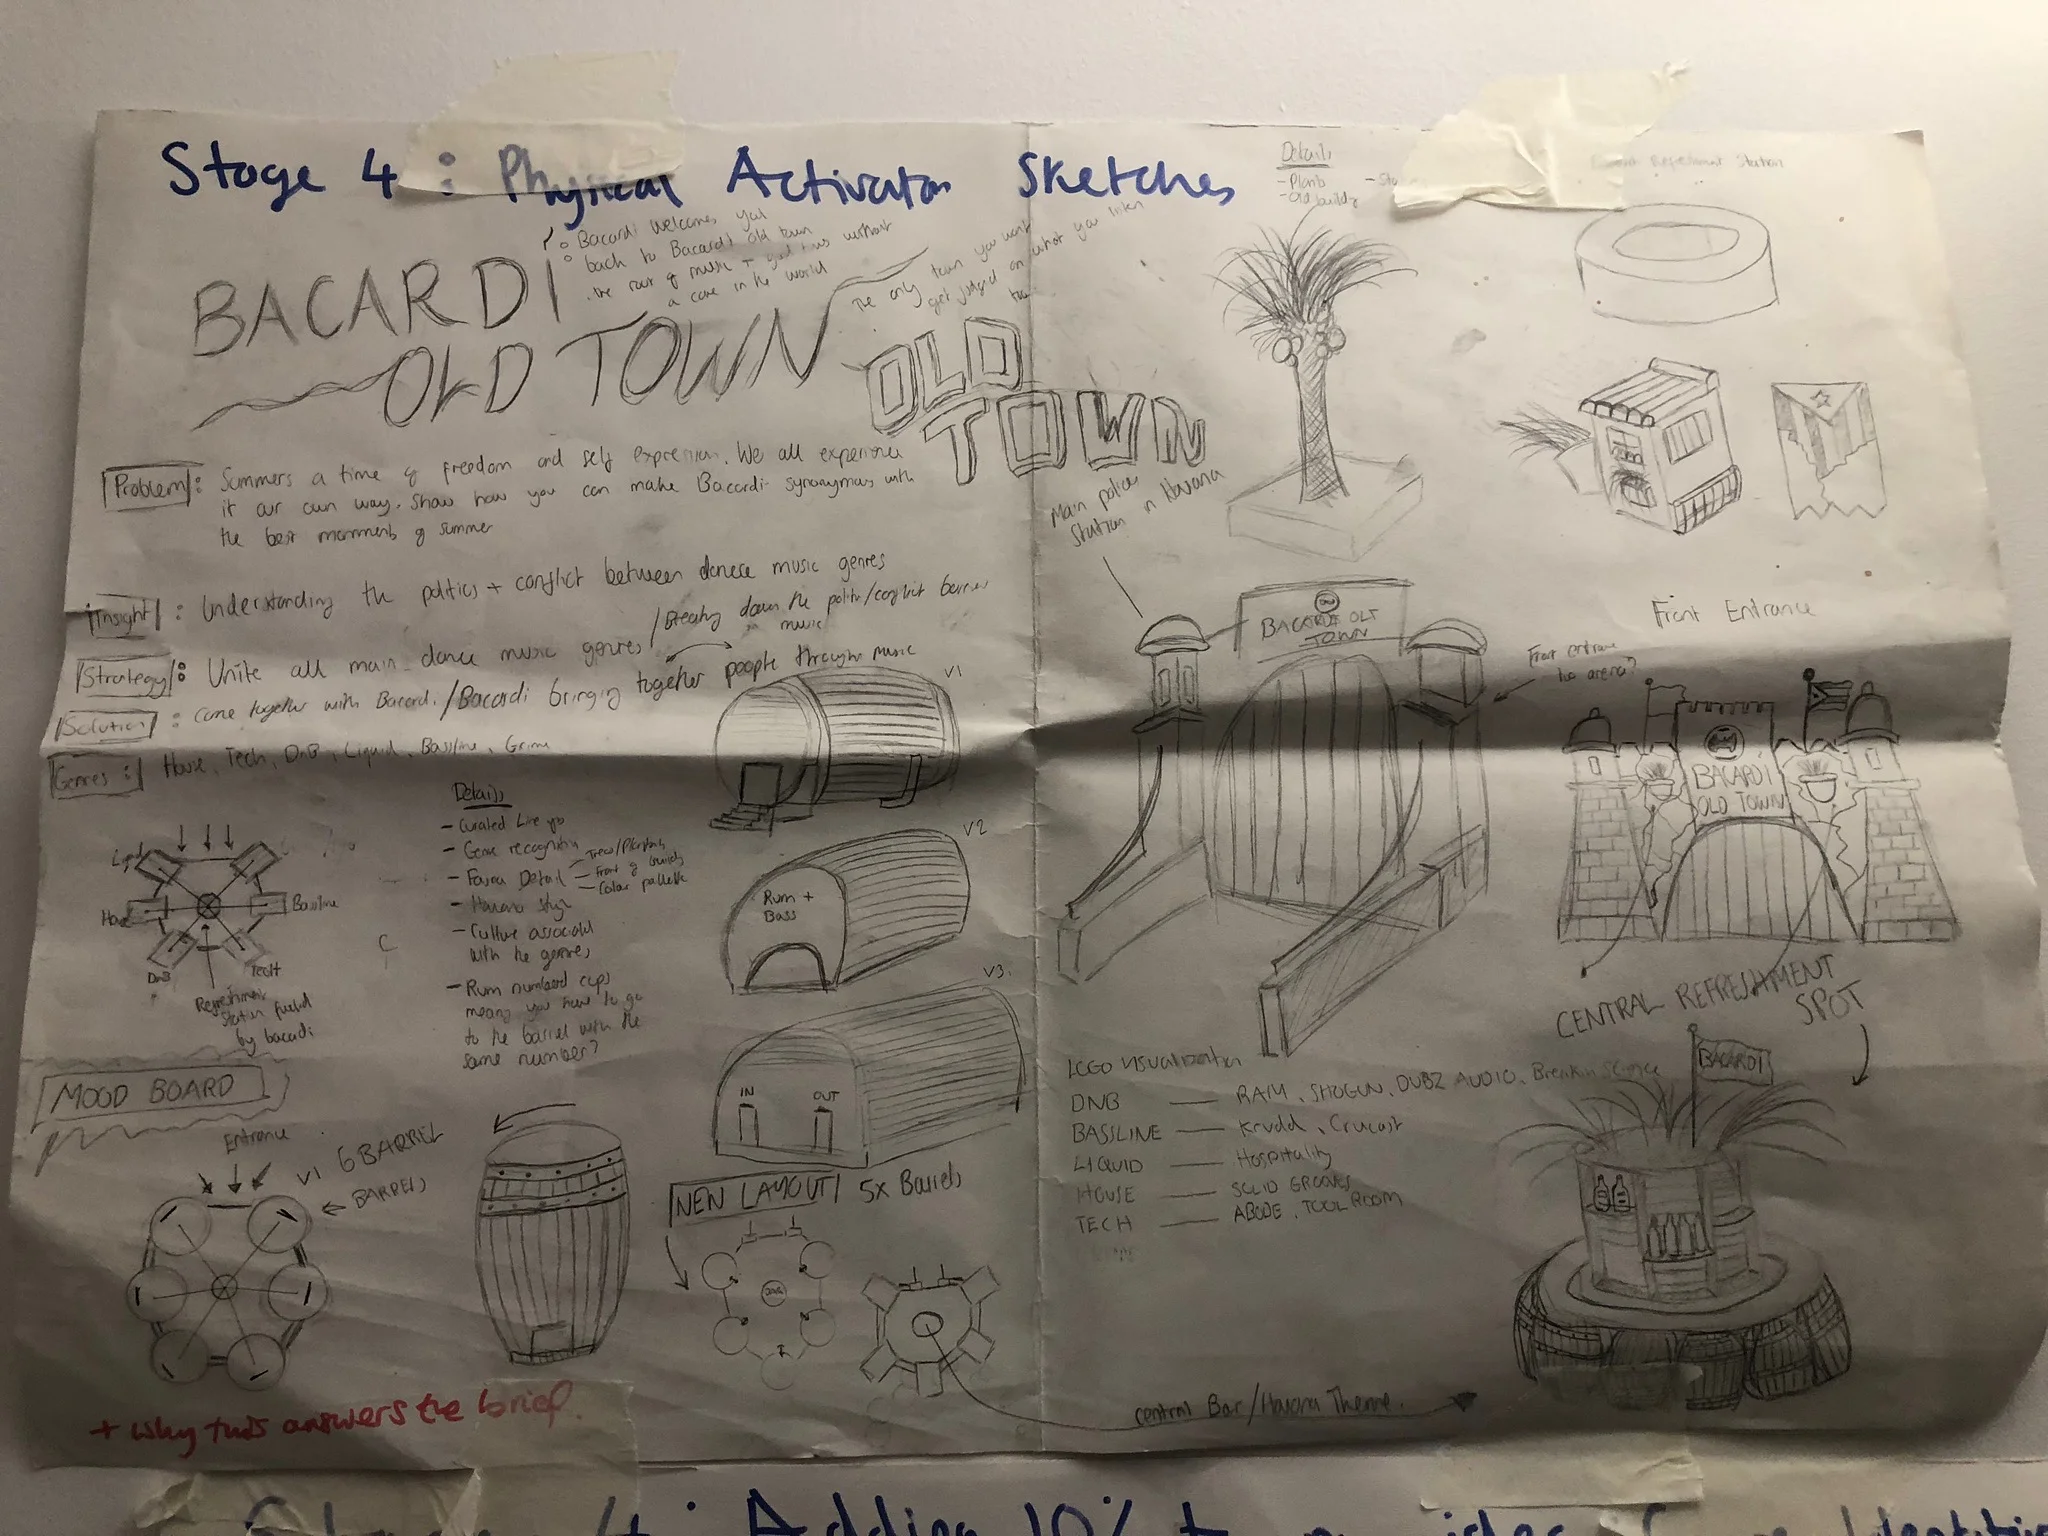 Stage 4 : Physical Activation Sketches
Details
- Plants
- Old building
Refreshment Station
Bacardi welcomes you
back to Bacardi old town
the root of music + good times without
a care in the world
The only town you wont
get judged on what you listen
too
BACARDI
OLD TOWN
OLD
TOWN
Problem : Summers a time of freedom and self expression. We all experience
it our own way. Show how you can make Bacardi synonymous with
the best moments of summer
Insight : Understanding the politics + conflict between dance music genres
Strategy : Unite all main dance music genres / Breaking down the politic/conflict barrier
in music
Solution : Come together with Bacardi. / Bacardi bringing together people through music
Genres : House, Tech, DnB, Liquid, Bassline, Grime
Main police
station in Havana
BACARDI OLT
TOWN
Front entrance
to arena?
Front Entrance
BACARDÍ
OLD TOWN
V1
V2
Rum +
Bass
V3.
IN
OUT
Liquid
House
Bassline
DnB
Tech
Refreshment
Station fueled
by bacardi
Details
- Curated Line up
- Genre recognition
- Detail
- Trees/Plants
- Front of buildings
- Colour pallette
- Havana style
- Culture associated
with the genres
- Rum numbered cups
mean you have to go
to the barrel with the
same number?
MOOD BOARD
Entrance
V1 6 BARREL
BARRELS
NEW LAYOUT 5x Barrels
LOGO visualization
DNB — RAM, SHOGUN, DUBZ AUDIO, Breakin Science
BASSLINE — Krudd, Crucast
LIQUID — Hospitality
HOUSE — SOLID GROOVES
TECH — ABODE, TOOL ROOM
CENTRAL REFRESHMENT
SPOT
BACARDI
central Bar/Havana Theme.
+ why this answers the brief.
Adding 10% to